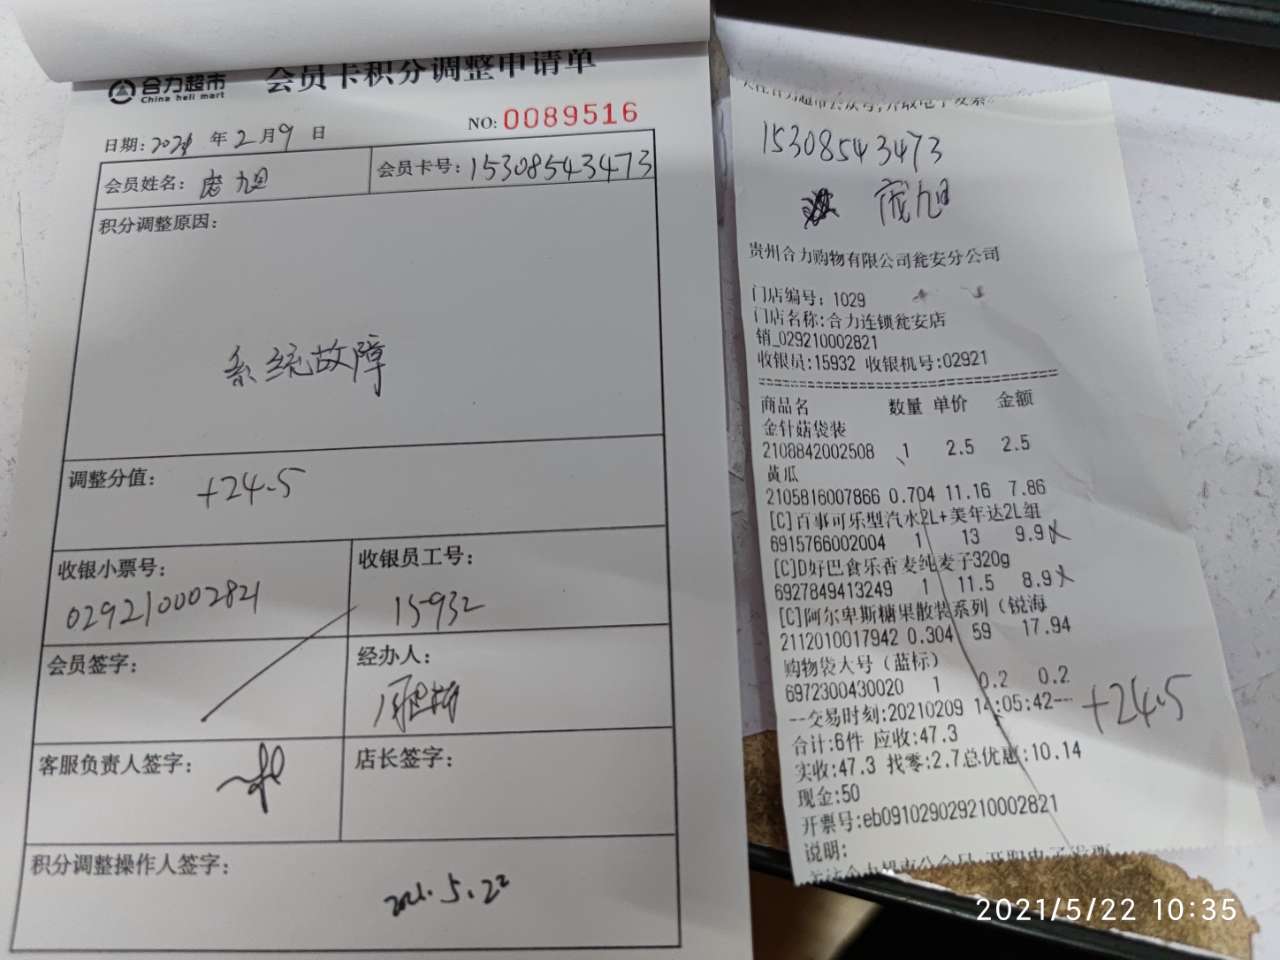 合力超市
China heli mart
会员卡积分调整申请单
日期: 2021 年 2 月 9 日
NO: 0089516
会员姓名: 旭
会员卡号: 15308543473
积分调整原因:
系统故障
调整分值: +24.5
收银小票号:
029210002821
收银员工号:
15932
会员签字:
经办人:
客服负责人签字:
店长签字:
积分调整操作人签字:
2021.5.22
15308543473
旭
贵州合力购物有限公司瓮安分公司
门店编号: 1029
门店名称:合力连锁瓮安店
销_029210002821
收银员:15932 收银机号:02921
商品名 数量 单价 金额
金针菇袋装
2108842002508 1 2.5 2.5
黄瓜
2105816007866 0.704 11.16 7.86
[C]百事可乐型汽水2L+美年达2L组
6915766002004 1 13 9.9
[C]D好巴食乐香麦纯麦子320g
6927849413249 1 11.5 8.9
[C]阿尔卑斯糖果散装系列（锐海
2112010017942 0.304 59 17.94
购物袋大号（蓝标）
6972300430020 1 0.2 0.2
--交易时刻:20210209 14:05:42--
+24.5
合计:6件 应收:47.3
实收:47.3 找零:2.7总优惠:10.14
现金:50
开票号:eb091029029210002821
说明:
2021/5/22 10:35